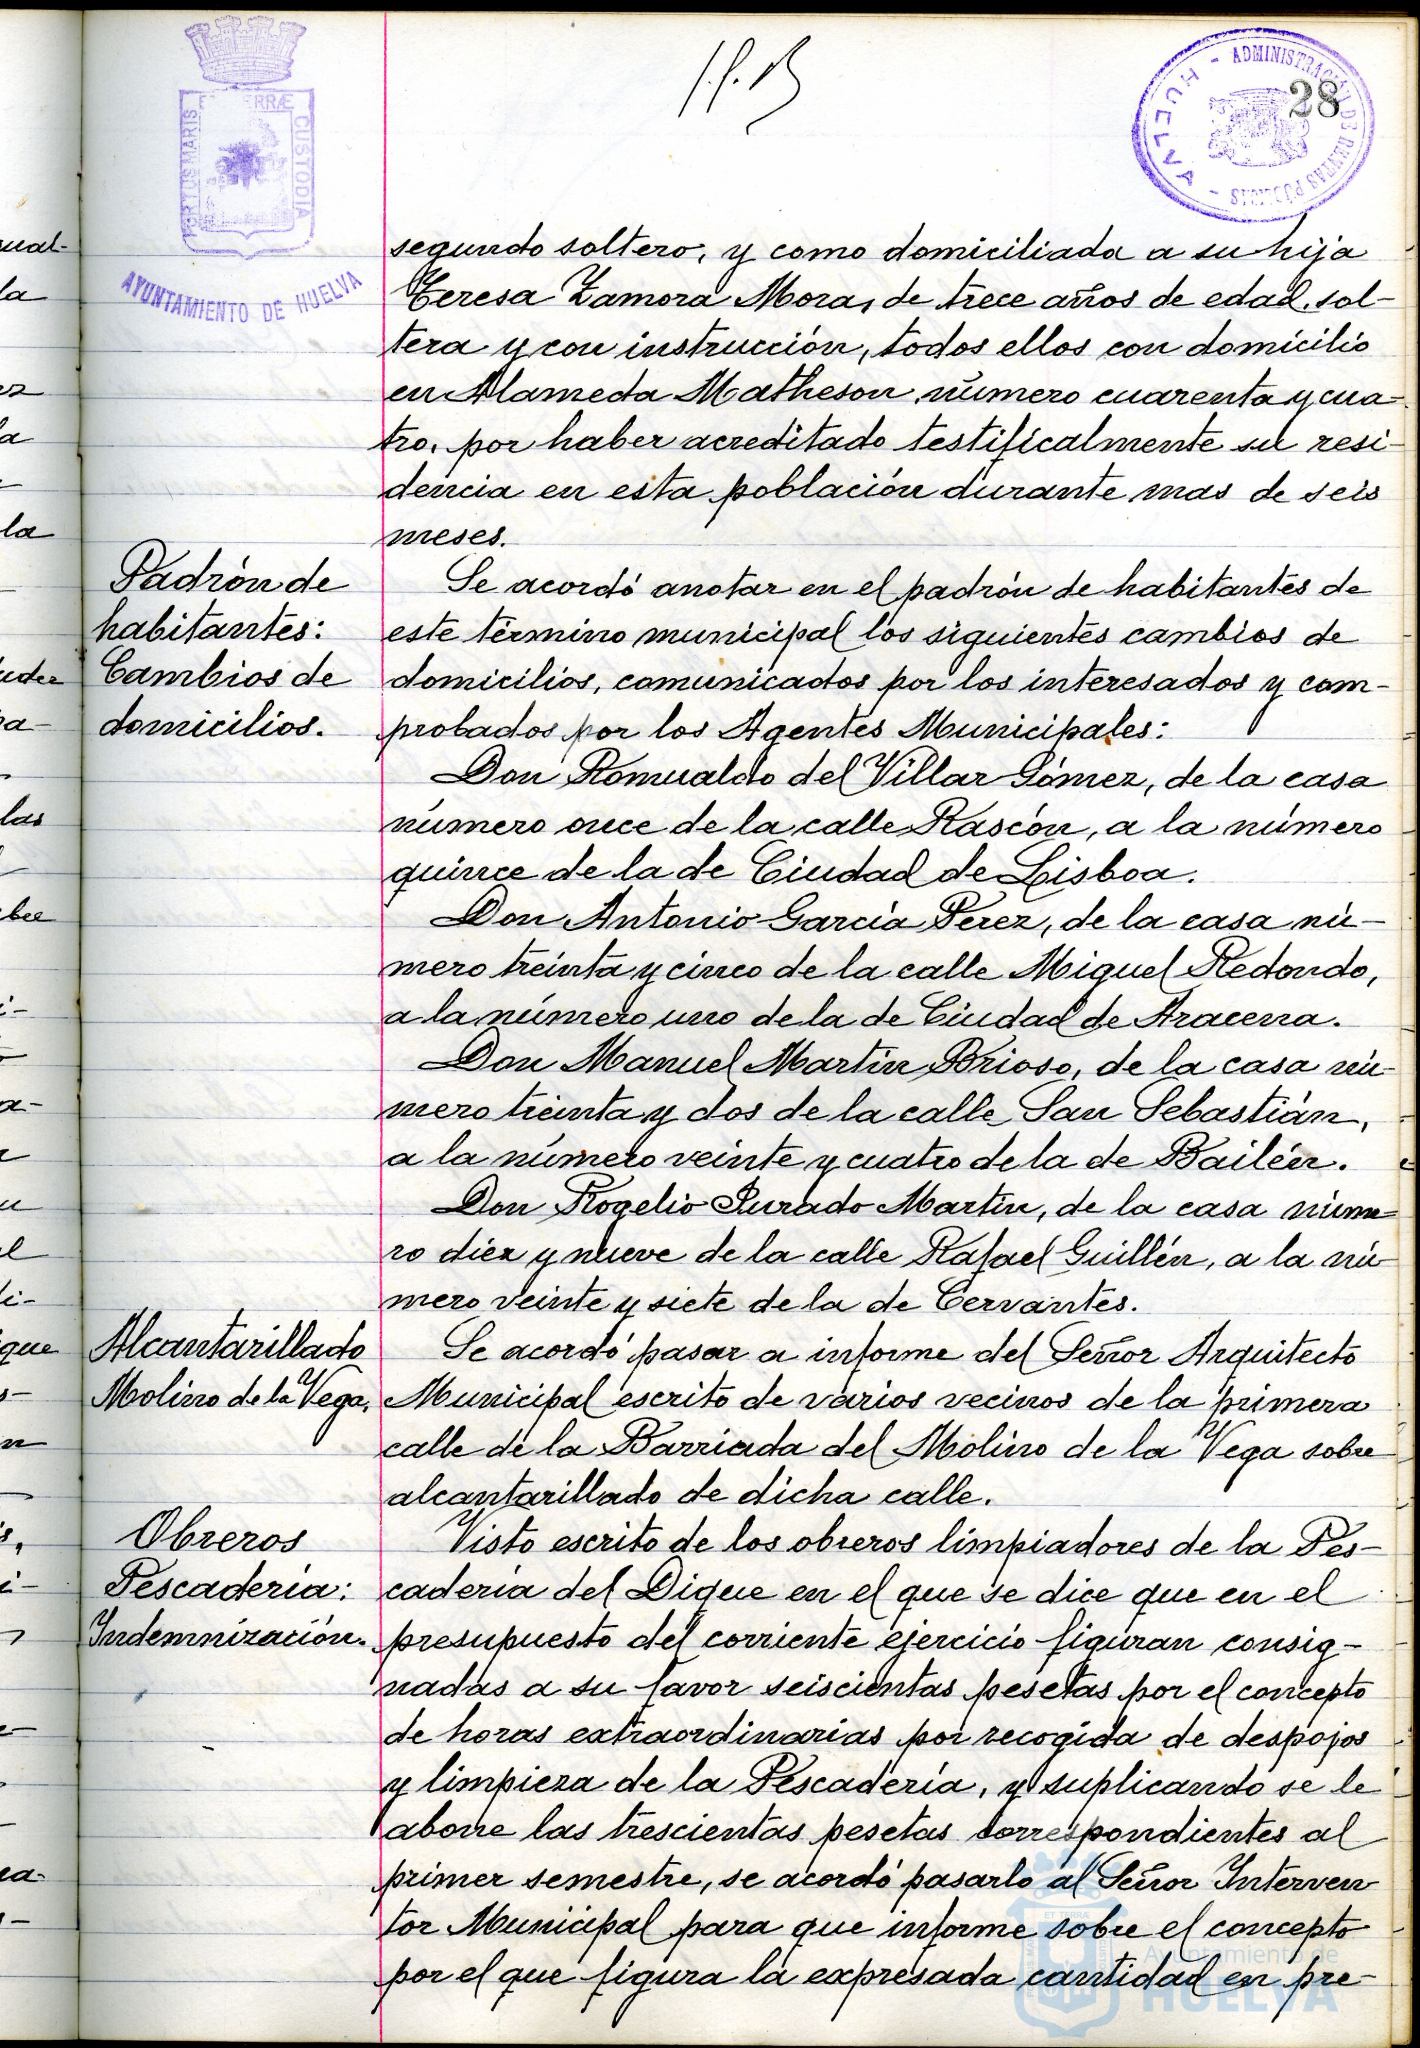 28
ADMINISTRACIÓN DE RENTAS PÚBLICAS
- HUELVA -
PORTUS MARIS ET TERRÆ CUSTODIA
AYUNTAMIENTO DE HUELVA
segundo soltero, y como domiciliada a su hija
Teresa Zamora Mora, de trece años de edad, sol-
tera y con instrucción, todos ellos con domicilio
en Alameda Matheson número cuarenta y cua-
tro, por haber acreditado testificalmente su resi-
dencia en esta población durante mas de seis
meses.
Padrón de
habitantes:
Cambios de
domicilios.
Se acordó anotar en el padrón de habitantes de
este término municipal los siguientes cambios de
domicilios, comunicados por los interesados y com-
probados por los Agentes Municipales:
Don Romualdo del Villar Gómez, de la casa
número once de la calle Rascón, a la número
quince de la de Ciudad de Lisboa.
Don Antonio García Pérez, de la casa nú-
mero treinta y cinco de la calle Miguel Redondo,
a la número uno de la de Ciudad de Aracena.
Don Manuel Martín Brioso, de la casa nú-
mero treinta y dos de la calle San Sebastián,
a la número veinte y cuatro de la de Bailén.
Don Rogelio Jurado Martín, de la casa núme-
ro diez y nueve de la calle Rafael Guillén, a la nú-
mero veinte y siete de la de Cervantes.
Alcantarillado
Molino de la Vega.
Se acordó pasar a informe del Señor Arquitecto
Municipal escrito de varios vecinos de la primera
calle de la Barriada del Molino de la Vega sobre
alcantarillado de dicha calle.
Obreros
Pescadería:
Indemnización.
Visto escrito de los obreros limpiadores de la Pes-
cadería del Dique en el que se dice que en el
presupuesto del corriente ejercicio figuran consig-
nadas a su favor seiscientas pesetas por el concepto
de horas extraordinarias por recogida de despojos
y limpieza de la Pescadería, y suplicando se le
abone las trescientas pesetas correspondientes al
primer semestre, se acordó pasarlo al Señor Interven-
tor Municipal para que informe sobre el concepto
por el que figura la expresada cantidad en pre-
Ayuntamiento de
HUELVA